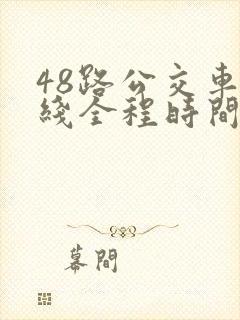 48路公交車
綫全程時間
幕間